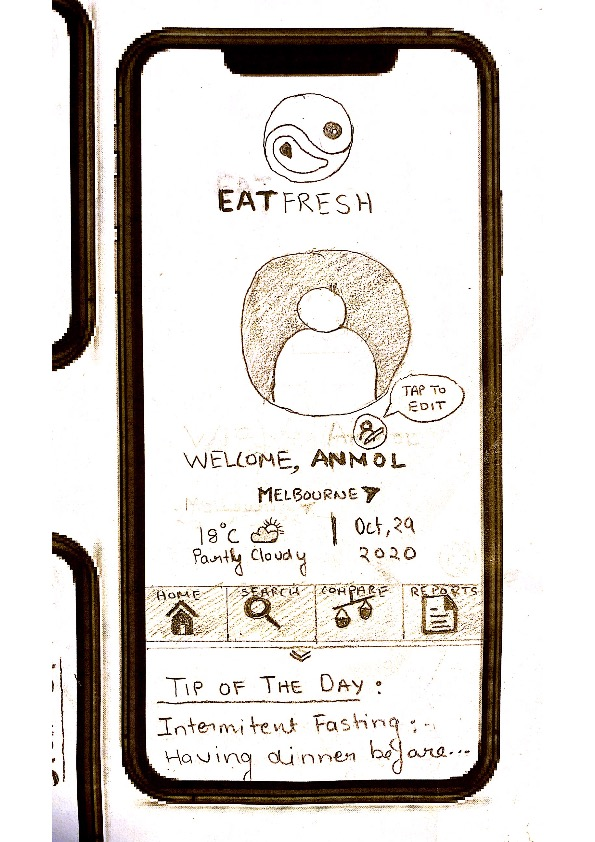 EATFRESH
TAP TO
EDIT
WELCOME, ANMOL
MELBOURNE
18°C | Oct, 29
Partly Cloudy 2020
HOME SEARCH COMPARE REPORTS
TIP OF THE DAY :
Intermitent Fasting :-
Having dinner before...